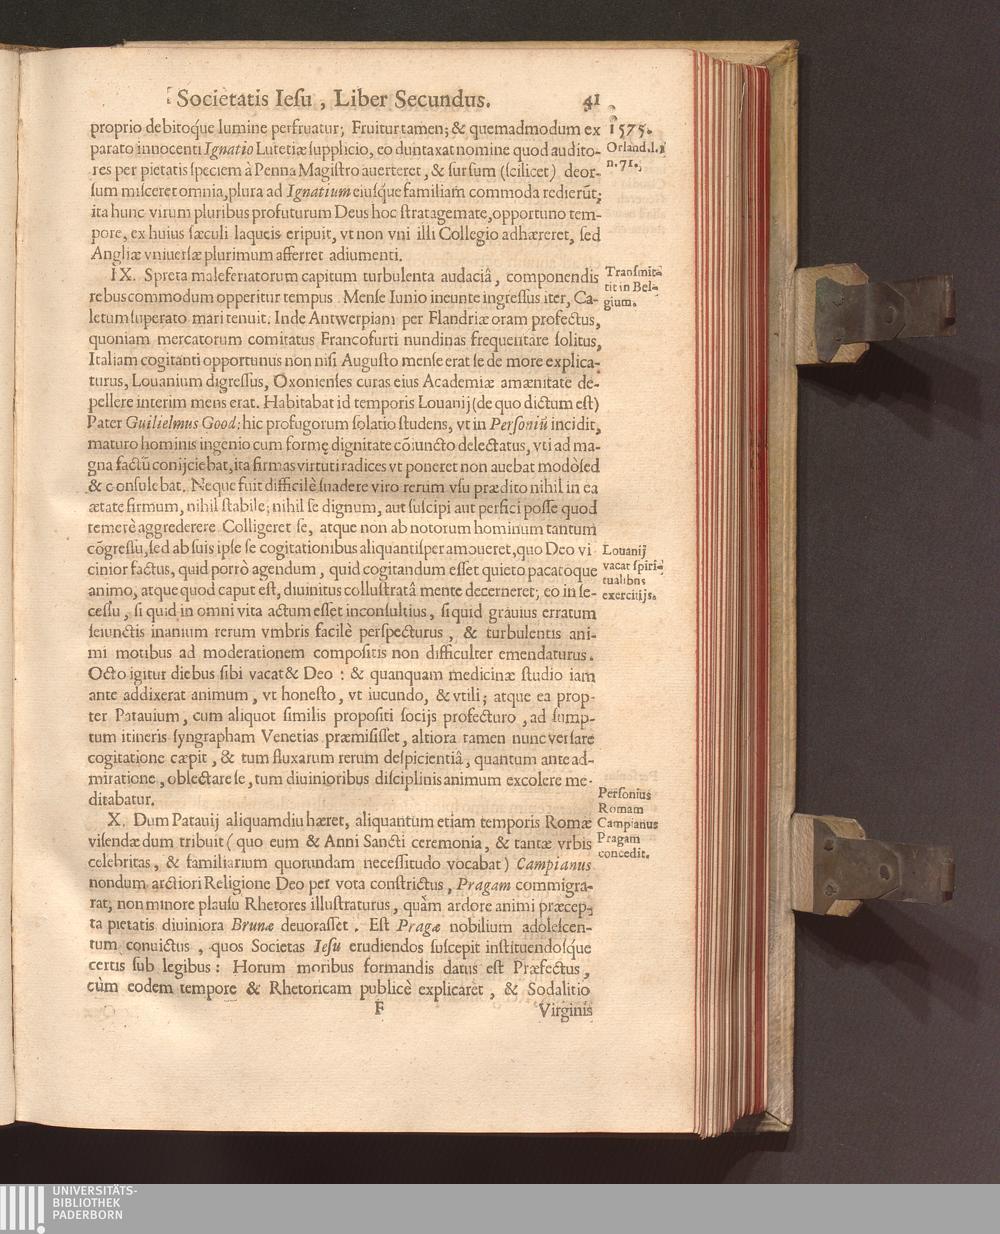 Societatis Iesu, Liber Secundus. 41
proprio debitoq́ue lumine perfruatur; Fruitur tamen; & quemadmodum ex
parato innocenti Ignatio Lutetiæ supplicio, eo duntaxat nomine quod audito-
res per pietatis speciem à Penna Magistro auerteret, & sursum (scilicet) deor-
sum misceret omnia, plura ad Ignatium eiusq́ue familiam commoda redierũt;
ita hunc virum pluribus profuturum Deus hoc stratagemate, opportuno tem-
pore, ex huius sæculi laqueis eripuit, vt non vni illi Collegio adhæreret, sed
Angliæ vniuersæ plurimum afferret adiumenti.
1575.
Orland. l.1
n. 71.
IX. Spreta maleferiatorum capitum turbulenta audaciâ, componendis
rebus commodum opperitur tempus. Mense Iunio ineunte ingressus iter, Ca-
letum superato mari tenuit. Inde Antwerpiam per Flandriæ oram profectus,
quoniam mercatorum comitatus Francofurti nundinas frequentare solitus,
Italiam cogitanti opportunus non nisi Augusto mense erat se de more explica-
turus, Louanium digressus, Oxonienses curas eius Academiæ amænitate de-
pellere interim mens erat. Habitabat id temporis Louanij (de quo dictum est)
Pater Guilielmus Good; hic profugorum solatio studens, vt in Personiũ incidit,
maturo hominis ingenio cum formę dignitate cõiuncto delectatus, vti ad ma-
gna factũ conijciebat, ita firmas virtuti radices vt poneret non auebat modò sed
& consulebat. Neque fuit difficilè suadere viro rerum vsu prædito nihil in ea
ætate firmum, nihil stabile; nihil se dignum, aut suscipi aut perfici posse quod
temerè aggrederere. Colligeret se, atque non ab notorum hominum tantum
cõgressu, sed ab suis ipse se cogitationibus aliquantisper amoueret, quo Deo vi
cinior factus, quid porrò agendum, quid cogitandum esset quieto pacatoque
animo, atque quod caput est, diuinitus collustratâ mente decerneret; eo in se-
cessu, si quid in omni vita actum esset inconsultius, si quid grauius erratum
seiunctis inanium rerum vmbris facilè perspecturus, & turbulentis ani-
mi motibus ad moderationem compositis non difficulter emendaturus.
Octo igitur diebus sibi vacat & Deo: & quanquam medicinæ studio iam
ante addixerat animum, vt honesto, vt iucundo, & vtili; atque ea prop-
ter Patauium, cum aliquot similis propositi socijs profecturo, ad sump-
tum itineris syngrapham Venetias præmisisset, altiora tamen nunc versare
cogitatione cæpit, & tum fluxarum rerum despicientiâ, quantum ante ad-
miratione, oblectare se, tum diuinioribus disciplinis animum excolere me-
ditabatur.
Transmit-
tit in Bel-
gium.
Louanij
vacat spiri-
tualibus
exercitijs.
X. Dum Patauij aliquamdiu hæret, aliquantum etiam temporis Romæ
visendæ dum tribuit (quo eum & Anni Sancti ceremonia, & tantæ vrbis
celebritas, & familiarium quorundam necessitudo vocabat) Campianus
nondum arctiori Religione Deo per vota constrictus, Pragam commigra-
rat, non minore plausu Rhetores illustraturus, quàm ardore animi præcep-
ta pietatis diuiniora Brunæ deuorasset. Est Pragæ nobilium adolescen-
tum conuictus, quos Societas Iesu erudiendos suscepit instituendosq́ue
certis sub legibus: Horum moribus formandis datus est Præfectus,
cùm eodem tempore & Rhetoricam publicè explicaret, & Sodalitio
Personius
Romam
Campianus
Pragam
concedit.
F Virginis
UNIVERSITÄTS-
BIBLIOTHEK
PADERBORN